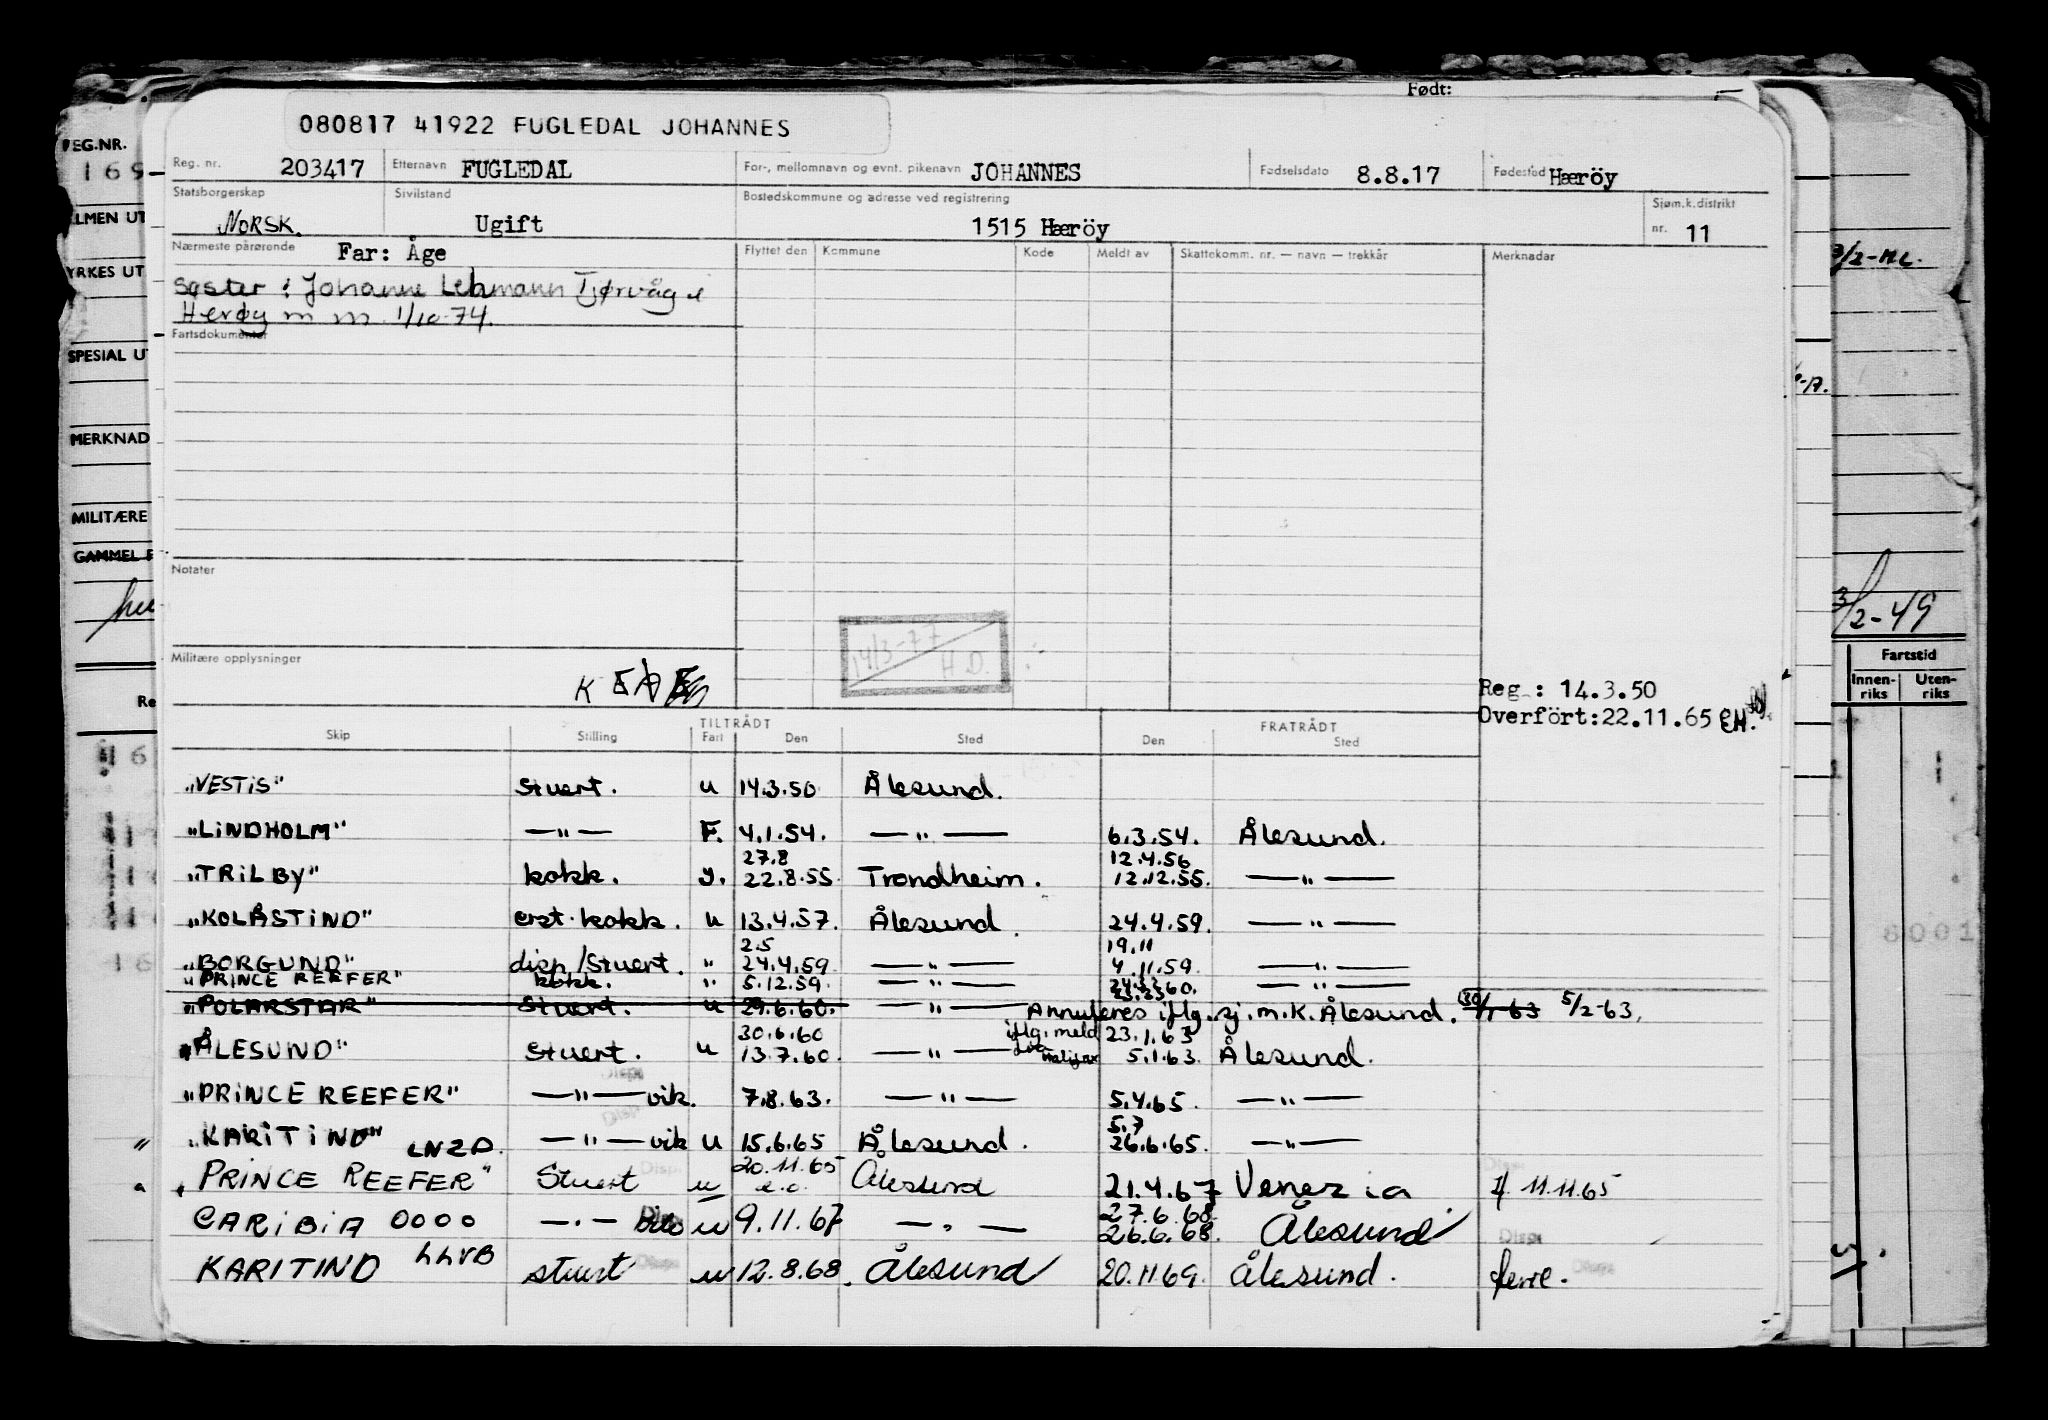 Født:
080817 41922 FUGLEDAL JOHANNES
Reg. nr. 203417 Etternavn FUGLEDAL For-, mellomnavn og evnt. pikenavn JOHANNES Fødselsdato 8.8.17 Fødested Hærøy
Statsborgerskap NORSK. Sivilstand Ugift Bostedskommune og adresse ved registrering 1515 Hærøy Sjøm.k.distrikt nr. 11
Nærmeste pårørende Far: Åge Flyttet den Kommune Kode Meldt av Skattekomm. nr. — navn — trekkår Merknader
Søster: Johanne Lehmann Tjørvåg i
Herøy m m. 1/10-74.
Fartsdokumenter
Notater
14/3-77
H.D.
Militære opplysninger
Reg.: 14.3.50
Overført: 22.11.65 EH.
TILTRÅDT FRATRÅDT
Skip Stilling Fart Den Sted Den Sted
"VESTIS" Stuert. u 14.3.50 Ålesund.
"LINDHOLM" —"— F. 4.1.54. —"— 6.3.54. Ålesund.
27.8 12.4.56
"TRILBY" kokk. 22.8.55. Trondheim. 12.12.55. —"—
"KOLÅSTIND" erst. kokk. u 13.4.57. Ålesund. 24.4.59. —"—
2.5 19.11
"BORGUND" disp/Stuert. " 24.4.59 —"— 4.11.59. —"—
"PRINCE REEFER" kokk. " 5.12.59. —"— —"—
"POLARSTAR" Stuert. u 29.6.60. —"— Annuleres iflg. sj.m.k. Ålesund. 5/2-63.
30.6.60 iflg. meld 23.1.63
"ÅLESUND" Stuert. u 13.7.60. —"— 5.1.63. Ålesund.
"PRINCE REEFER" —"— vik. 7.8.63. —"— 5.4.65. —"—
5.7
"KARITIND" LNZD. —"— vik u 15.6.65 Ålesund. 26.6.65. —"—
20.11.65
PRINCE REEFER" Stuert u Ålesund 21.4.67 Venezia If. 11.11.65
27.6.68
CARIBIA OOOO —"— u 9.11.67 —"— 26.6.68. Ålesund
KARITIND LLVB stuert u 12.8.68. Ålesund 20.11.69. Ålesund. ferie.
REG.NR.
169
YRKES UT
SPESIAL UT
MERKNAD
MILITÆRE
GAMMEL F
3/2-49
Fartstid
Innen-riks Uten-riks